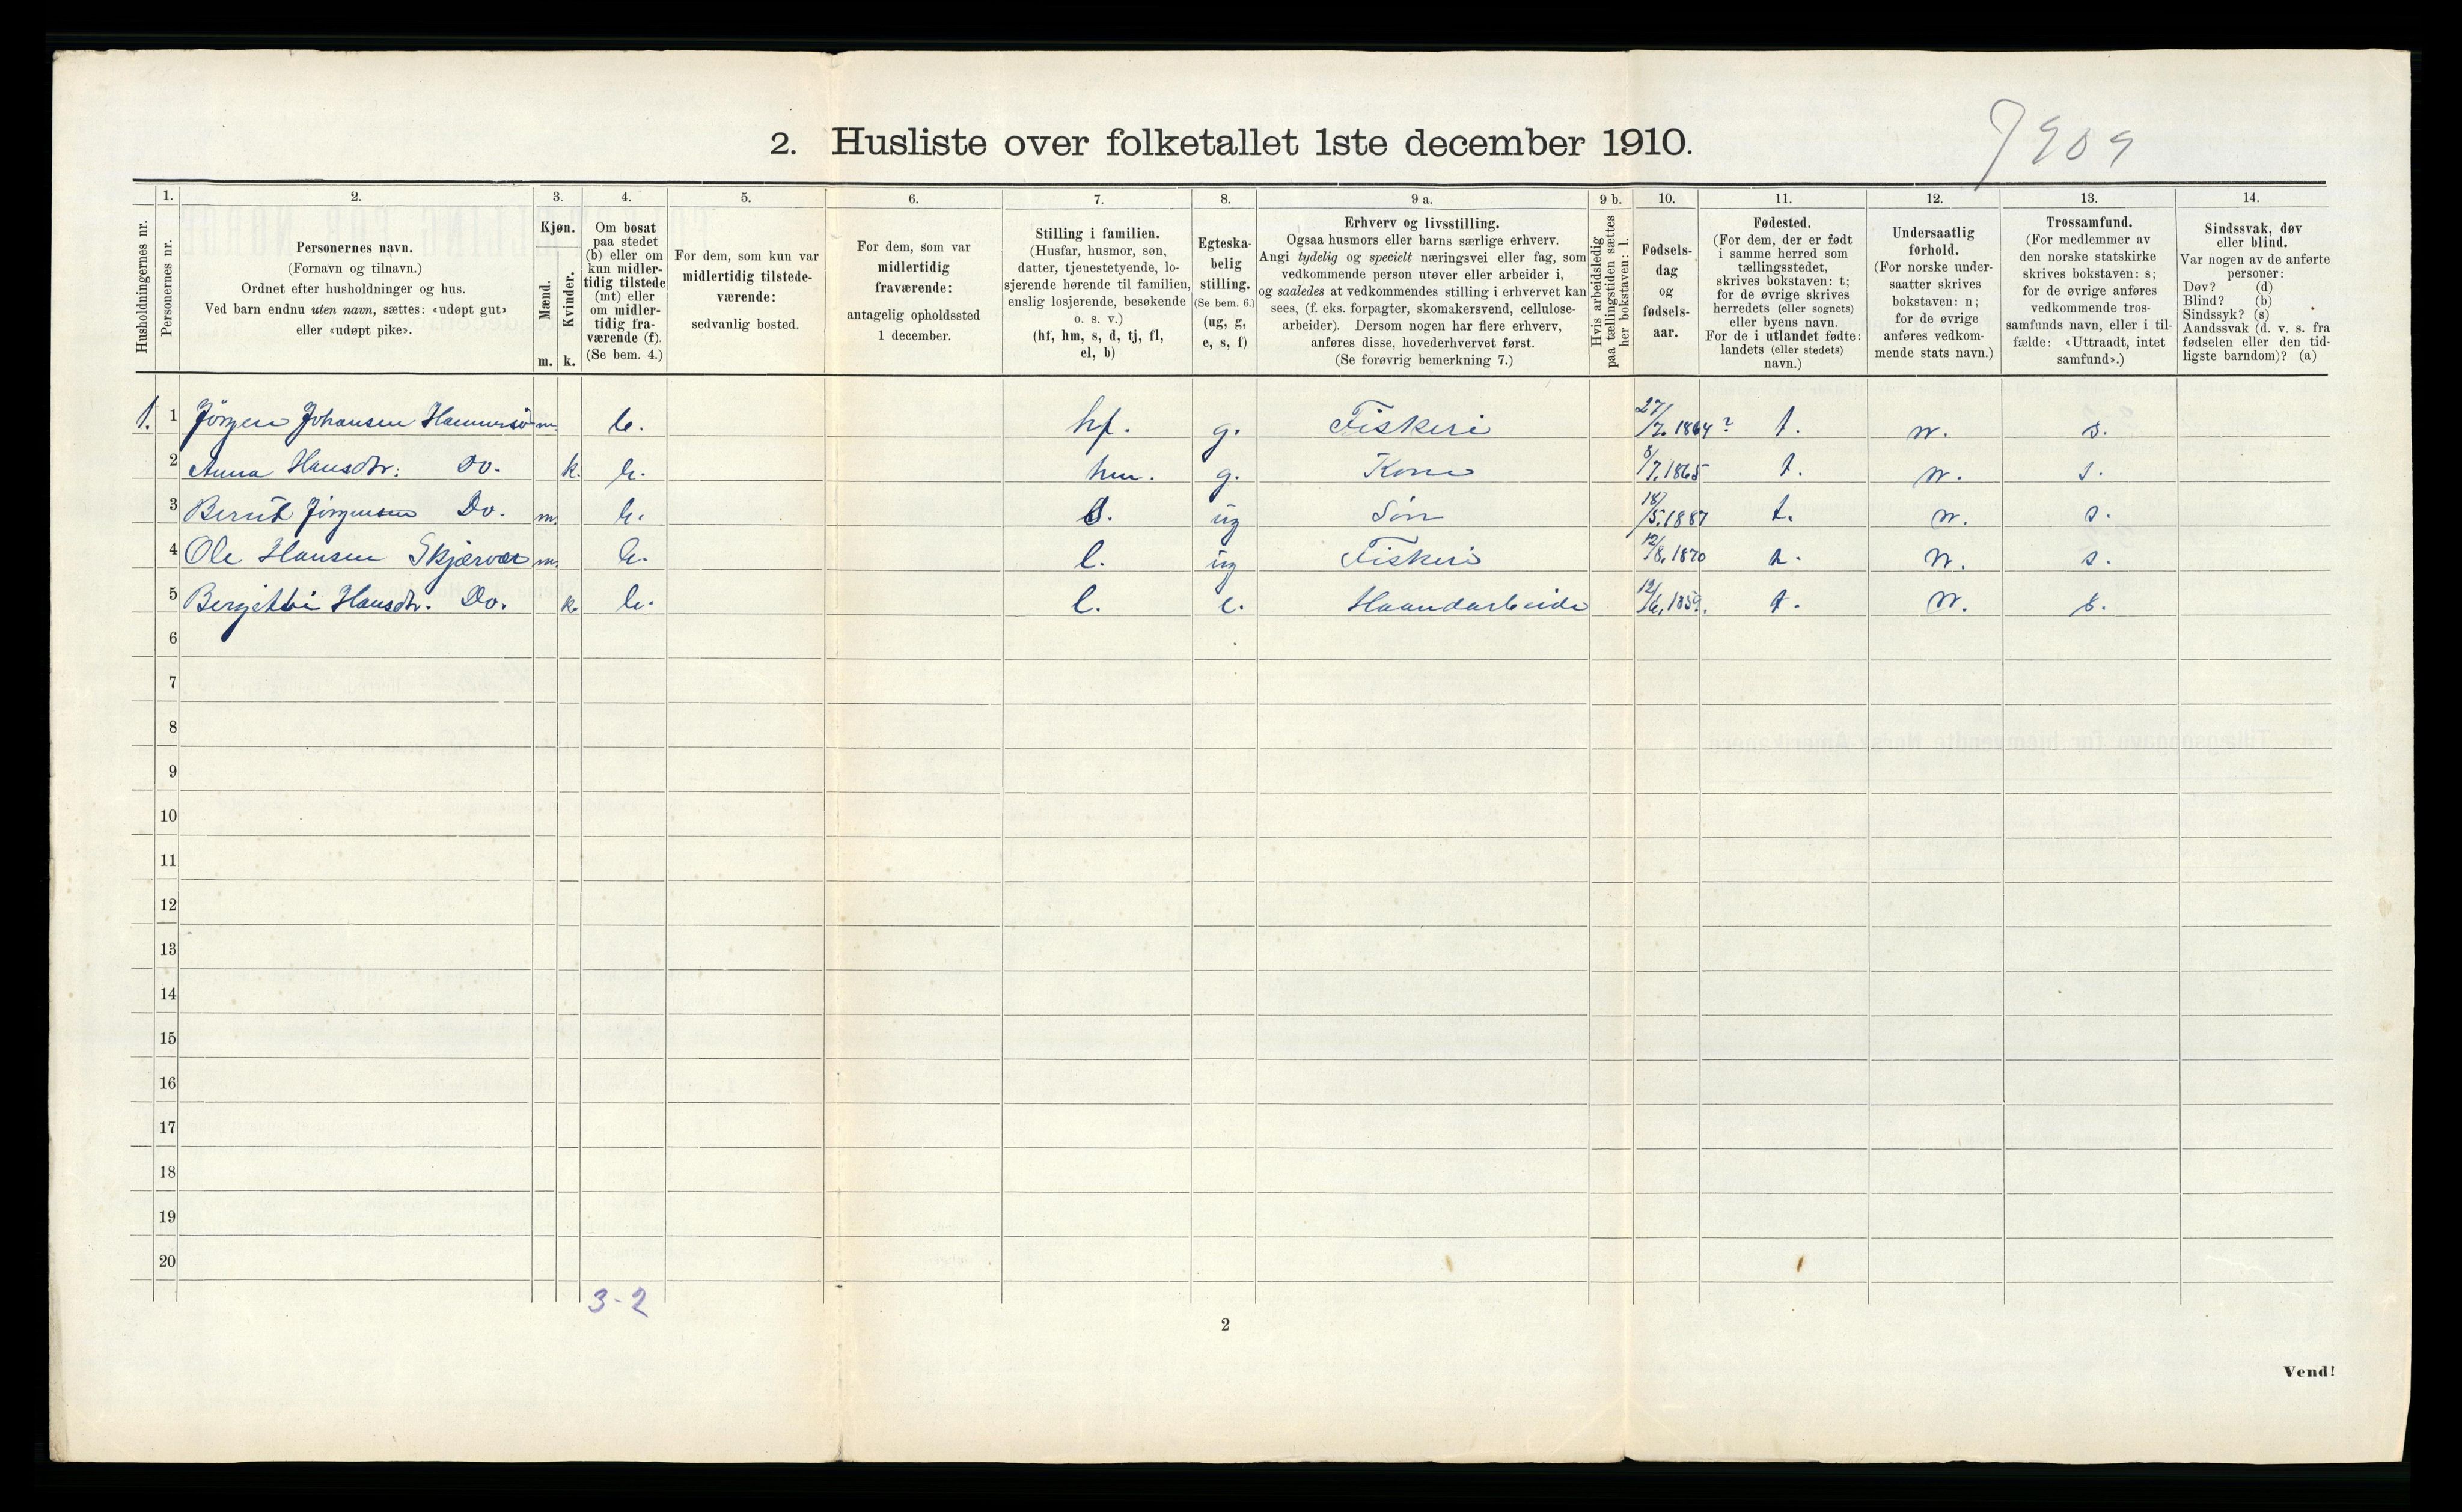 7909
2. Husliste over folketallet 1ste december 1910.
Husholdningernes nr.
1.
Personernes nr.
2.
Personernes navn.
(Fornavn og tilnavn.)
Ordnet efter husholdninger og hus.
Ved barn endnu uten navn, sættes: «udøpt gut»
eller «udøpt pike».
3.
Kjøn.
Mænd.
Kvinder.
m. k.
4.
Om bosat
paa stedet
(b) eller om
kun midler-
tidig tilstede
(mt) eller
om midler-
tidig fra-
værende (f).
(Se bem. 4.)
5.
For dem, som kun var
midlertidig tilstede-
værende:
sedvanlig bosted.
6.
For dem, som var
midlertidig
fraværende:
antagelig opholdssted
1 december.
7.
Stilling i familien.
(Husfar, husmor, søn,
datter, tjenestetyende, lo-
sjerende hørende til familien,
enslig losjerende, besøkende
o. s. v.)
(hf, hm, s, d, tj, fl,
el, b)
8.
Egteska-
belig
stilling.
(Se bem. 6.)
(ug, g,
e, s, f)
9 a.
Erhverv og livsstilling.
Ogsaa husmors eller barns særlige erhverv.
Angi tydelig og specielt næringsvei eller fag, som
vedkommende person utøver eller arbeider i,
og saaledes at vedkommendes stilling i erhvervet kan
sees, (f. eks. forpagter, skomakersvend, cellulose-
arbeider). Dersom nogen har flere erhverv,
anføres disse, hovederhvervet først.
(Se forøvrig bemerkning 7.)
9 b.
Hvis arbeidsledig
paa tællingstiden sættes
her bokstaven: l.
10.
Fødsels-
dag
og
fødsels-
aar.
11.
Fødested.
(For dem, der er født
i samme herred som
tællingsstedet,
skrives bokstaven: t;
for de øvrige skrives
herredets (eller sognets)
eller byens navn.
For de i utlandet fødte:
landets (eller stedets)
navn.)
12.
Undersaatlig
forhold.
(For norske under-
saatter skrives
bokstaven: n;
for de øvrige
anføres vedkom-
mende stats navn.)
13.
Trossamfund.
(For medlemmer av
den norske statskirke
skrives bokstaven: s;
for de øvrige anføres
vedkommende tros-
samfunds navn, eller i til-
fælde: «Uttraadt, intet
samfund».)
14.
Sindssvak, døv
eller blind.
Var nogen av de anførte
personer:
Døv? (d)
Blind? (b)
Sindssyk? (s)
Aandssvak (d. v. s. fra
fødselen eller den tid-
ligste barndom)? (a)
1. 1 Jörgen Johansen m. b. hf. g. Fiskeri 27/7. 1864 ? t. n. s.
2 Anna Hansdtr. Do. k. b. hm. g. Kone 8/7. 1865 t. n. s.
3 Bernt Jörgensen Do. m. b. s. ug Sön 18/5. 1887 t. n. s.
4 Ole Hansen Skjærvær m. b. l. ug Fiskeri 12/8. 1870 t. n. s.
5 Hansdtr. Do. k. b. l. e. Haandarbeide 12/6. 1859. t. n. s.
6
7
8
9
10
11
12
13
14
15
16
17
18
19
20
3-2
2
Vend!